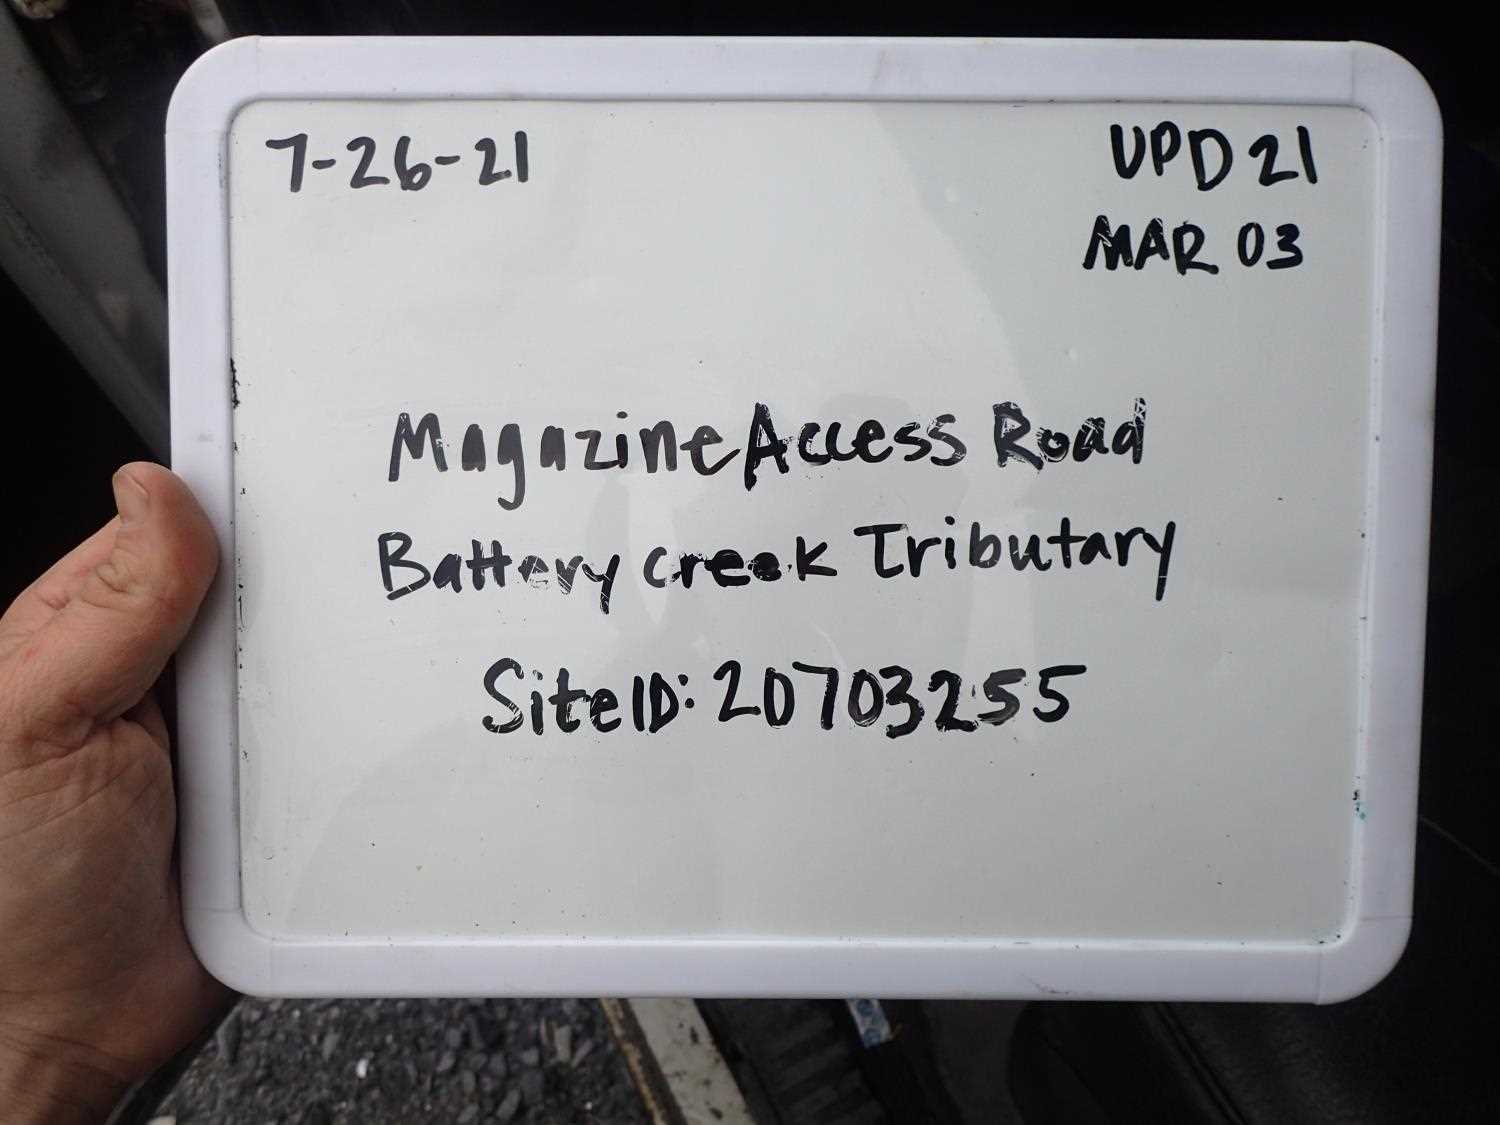 7-26-21
UPD 21
MAR 03
Magazine Access Road
Battery Creek Tributary
Site ID: 20703255